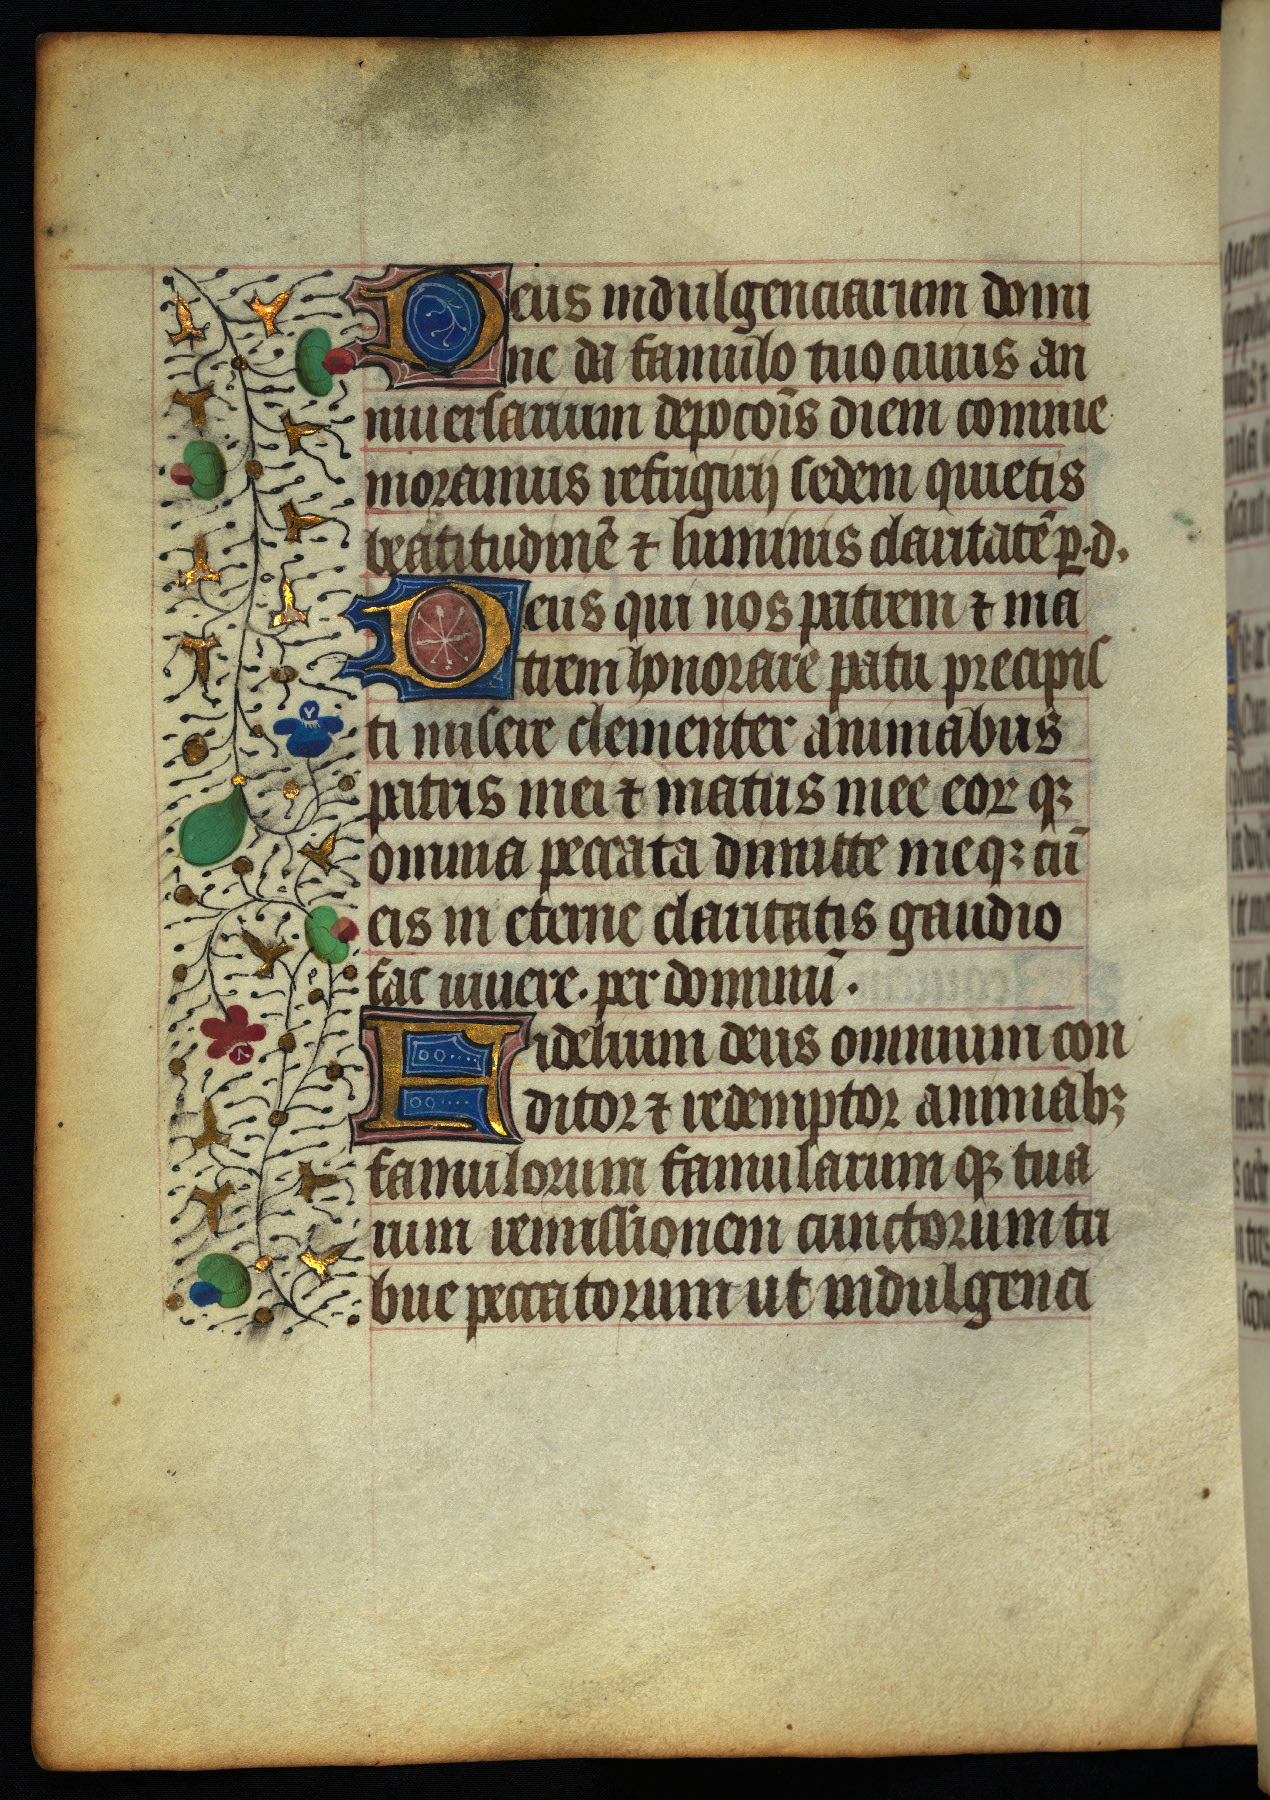 Deus indulgenciarum domi
ne da famulo tuo cuius an
niuersarium depocõis diem comme
moramus refrigirij sedem quietis
beatitudinē ⁊ luminis claritatē ꝑ·d·
Deus qui nos patrem ⁊ ma
trem honorare patri precipis
ti misere clementer animabus
patris mei ⁊ matris mee eoꝝ qꝫ
omnia peccata dimitte meqꝫ cū
eis in eterne claritatis gaudio
fac uiuere. per dominū ·
Fidelium deus omnium con
ditor ⁊ redemptor animabꝫ
famulorum famularum qꝫ tua
rum remissionem cunctorum tri
bue peccatorum ut indulgenci